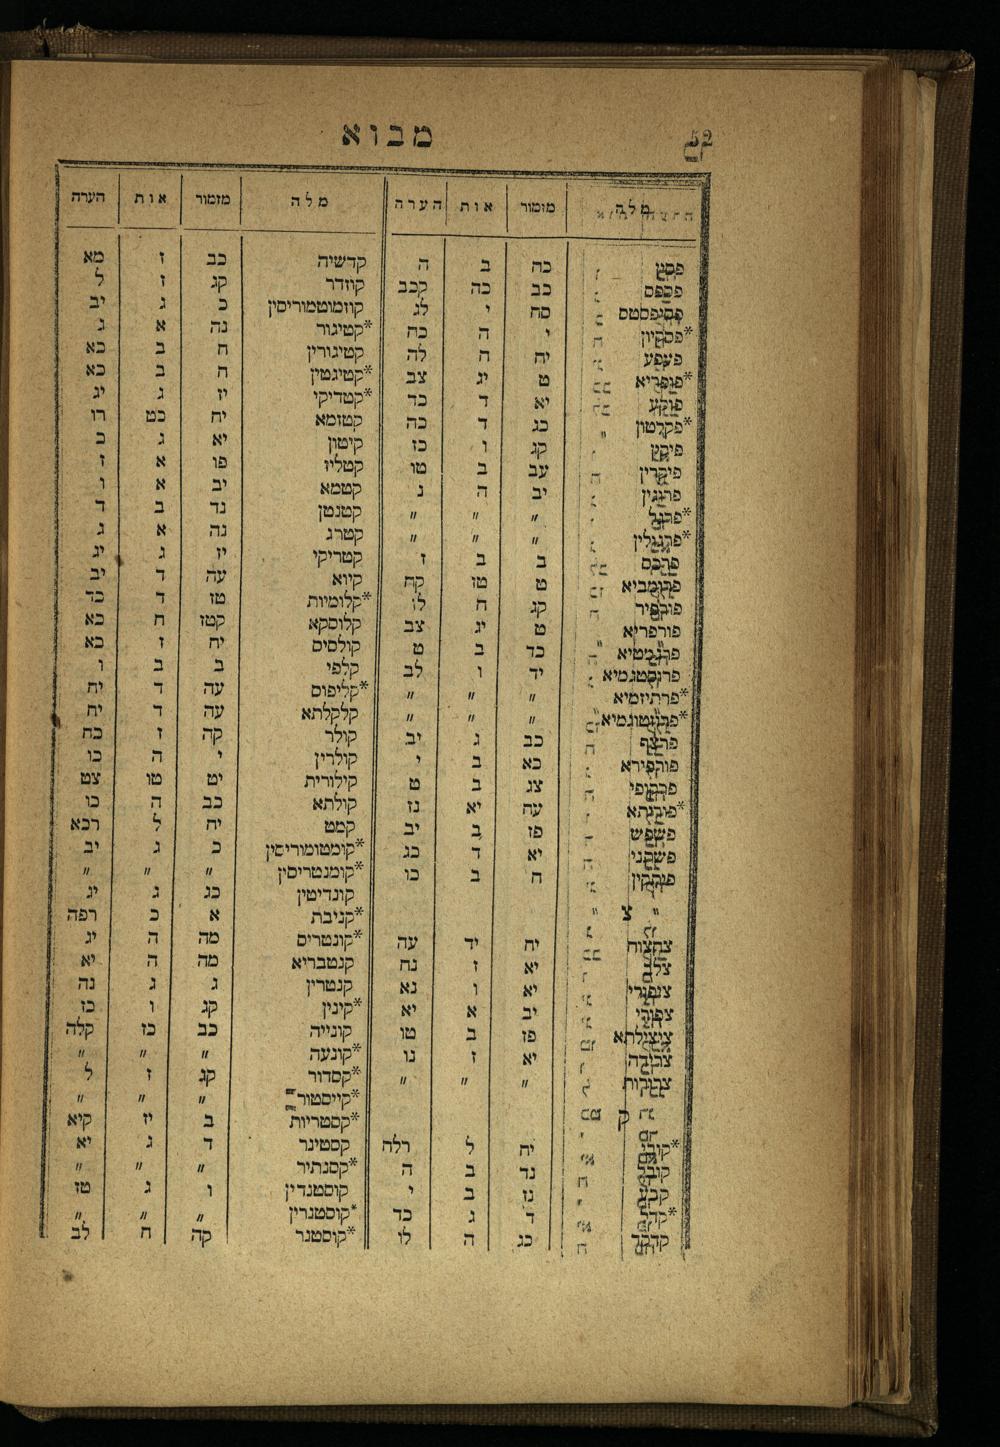 52
מבוא
מלה מזמור אות הערה
פסין כה ב ה
פספס כב כה קכב
פסיפסטס סח י לג
*פסקיון י ה כח
פעפע יח ח לה
ט יג צב
יא ד כד
*פקלטון כג ד כה
פיקין קג ו כז
פיקרין עב ב טו
פרגין יב ה נ
*פרגל " " "
*פרגילין " " "
פרכס ב ב ז
פרומביא ט טז קח
פורפיר קג ח לו
פורפריא ט יג צב
פרגמטיא כד ב ט
יד ו לב
*פרתיזמיא " " "
" " "
פרצוף כב ג יב
פורפירא כא ב י
פרקופי צג ב ט
עח יא נז
פשפש פז ב יב
פשפני יא ד כג
ח ב כו
צ
צחצוח יח יד עה
צלב יא ז נח
יא ו נא
צפורי יב א יא
ציצילתא פז ב טו
צרודה יא ז נו
צרורות " " "
ק
יח ל רלה
קובל נד ב ה
נז ב י
ד ג כד
קדקד כג ה לו
מלה מזמור אות הערה
קדשיה כב ז מא
קוזדר קג ז ל
קוזמוטמוריסין כ ג יב
*קטיגור נה א ג
קטיגורין ח ב כא
*קטיגטין ח ב כא
*קטדיקי יז ג יג
קטזמא יח כט רו
קיטון יא ג כ
קטליז פו א ז
קטמא יב א ו
קטנטן נד ב ד
קטרג נה א ג
קטריקי יז ג יג
קיוא עה ד יב
*קלומיות טז ד כד
קלוסקא קטז ח כא
קולסיס יח ז כא
קלפי ב ב ו
*קליפוס עה ד יח
קלקלתא עה ד יח
קולר קה ז כח
קולרין י ה כו
קילורית יט טו צט
קולתא כב ה כו
קמט יח ל רכא
*קומטומוריסין כ ג יב
*קומנטריסין " " "
קונדיטין כג ג יג
*קניבת א כ רפה
*קונטריס מה ה יג
קנטבריא מה ה יא
קנטרין ג ג נה
*קינין קג ו כז
קונייה כב כז קלה
*קונעה " " "
*קסדור קג ז ל
*קייסטור " " "
*קסטריות ב יז קיא
קסטינר ד ג יא
*קסנתיר " " "
קוסטנדין ו ג טז
*קוסטנרין " " "
*קוסטנר קה ח לב